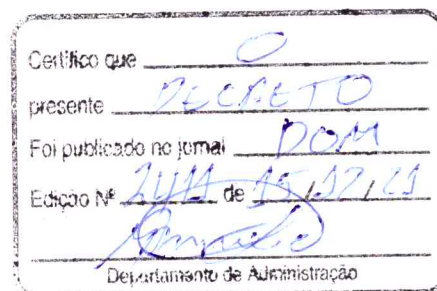 Certifico que O
presente DECRETO
Foi publicado no jornal DOM
Edição Nº de 15/12/21
Departamento de Administração